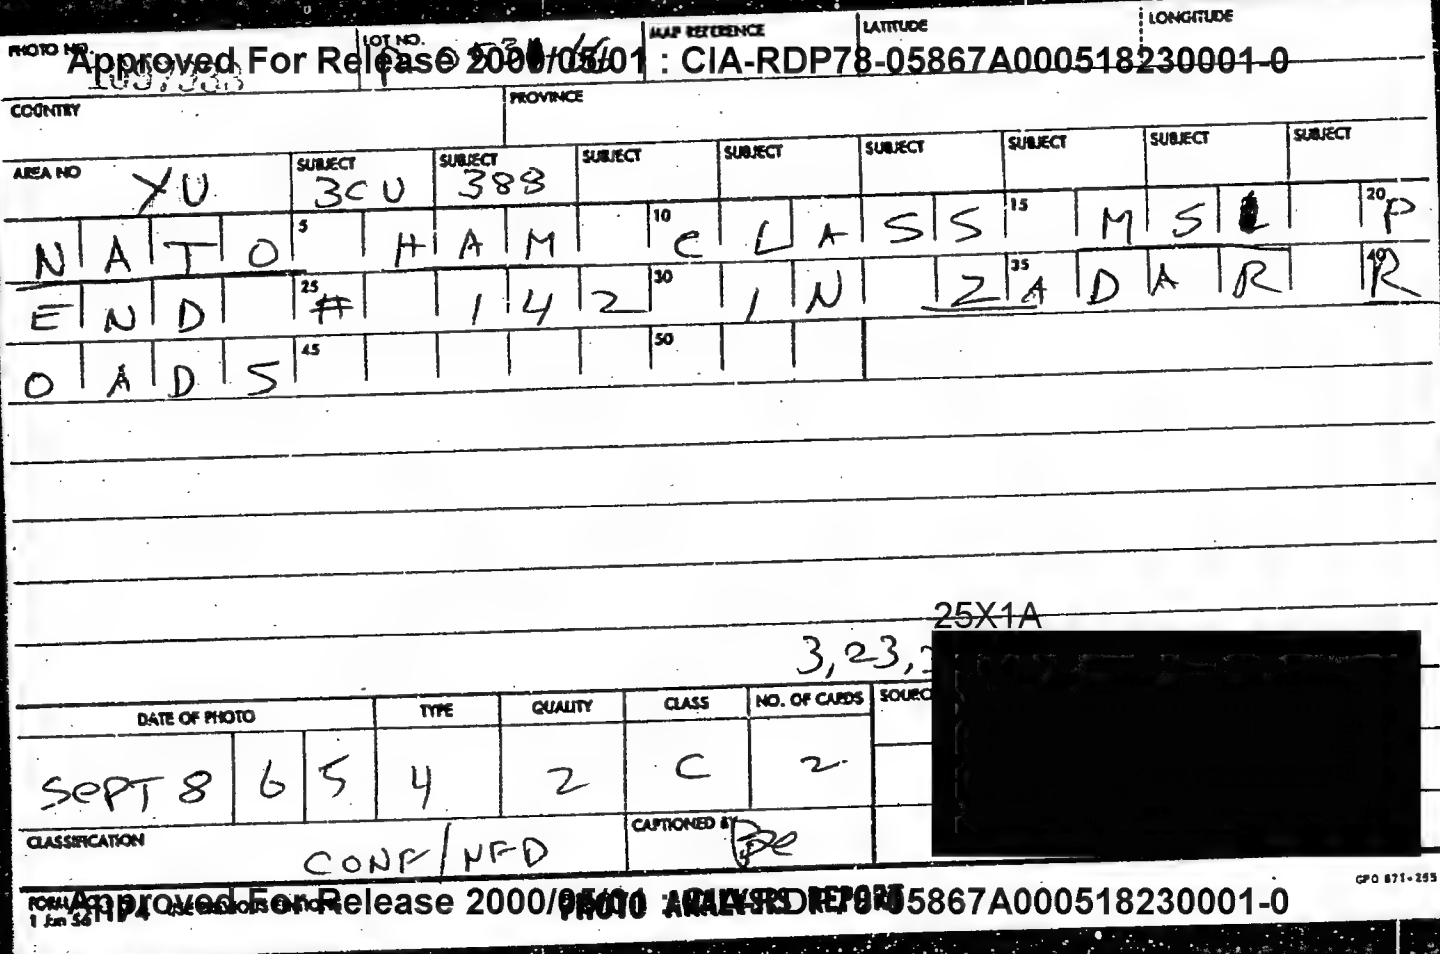 PHOTO NO. LOT NO. MAP REFERENCE LATITUDE LONGITUDE
Approved For Release 2000/05/01 : CIA-RDP78-05867A000518230001-0
COUNTRY PROVINCE
AREA NO YU SUBJECT 3CU SUBJECT 388 SUBJECT SUBJECT SUBJECT SUBJECT SUBJECT SUBJECT
NATO 5 HAM 10 CLASS 15 MSL 20 P
END 25 # 142 30 IN 35 ZADAR 40 R
OADS 45 50
25X1A
3, 23,
DATE OF PHOTO TYPE QUALITY CLASS NO. OF CARDS
SEPT 8 6 5 4 2 C 2
CLASSIFICATION CONF/NFD CAPTIONED BY
GPO 871-255
FORM
1 Jun 56
Approved For Release 2000/05/01 : CIA-RDP78-05867A000518230001-0
PHOTO ANALYSIS REPORT